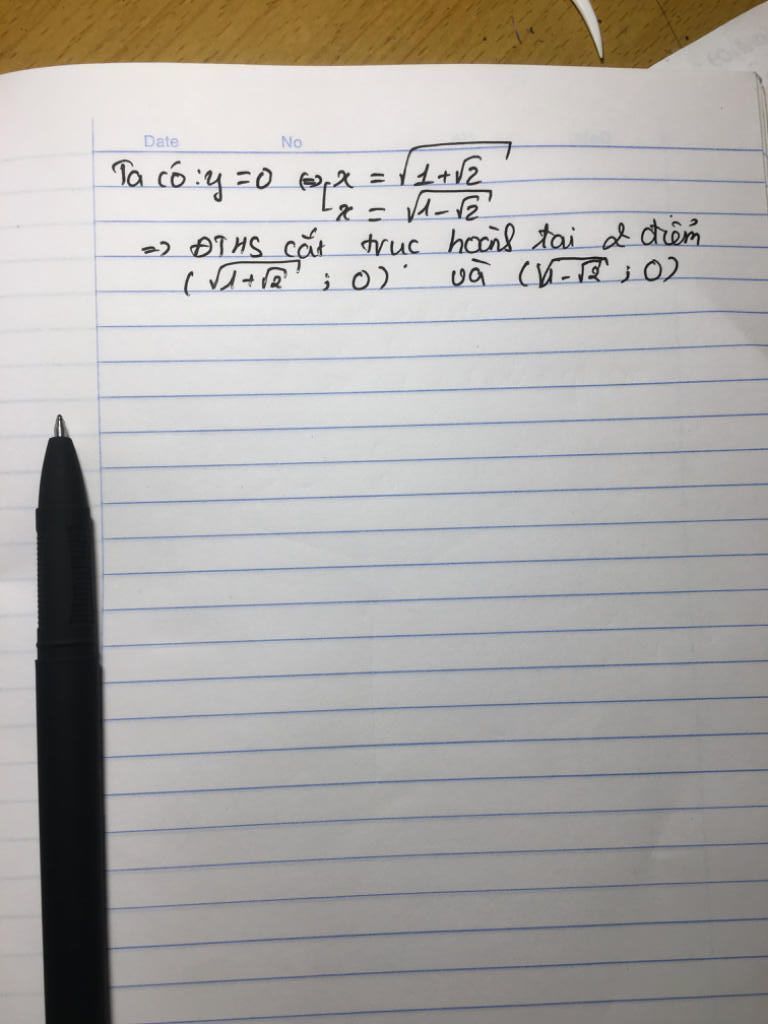 Date No
Ta có: y = 0 ⇔ [ x = √(1+√2)
x = √(1-√2)
=> ĐTHS cắt trục hoành tại 2 điểm
(√(1+√2) ; 0) và (√(1-√2) ; 0)